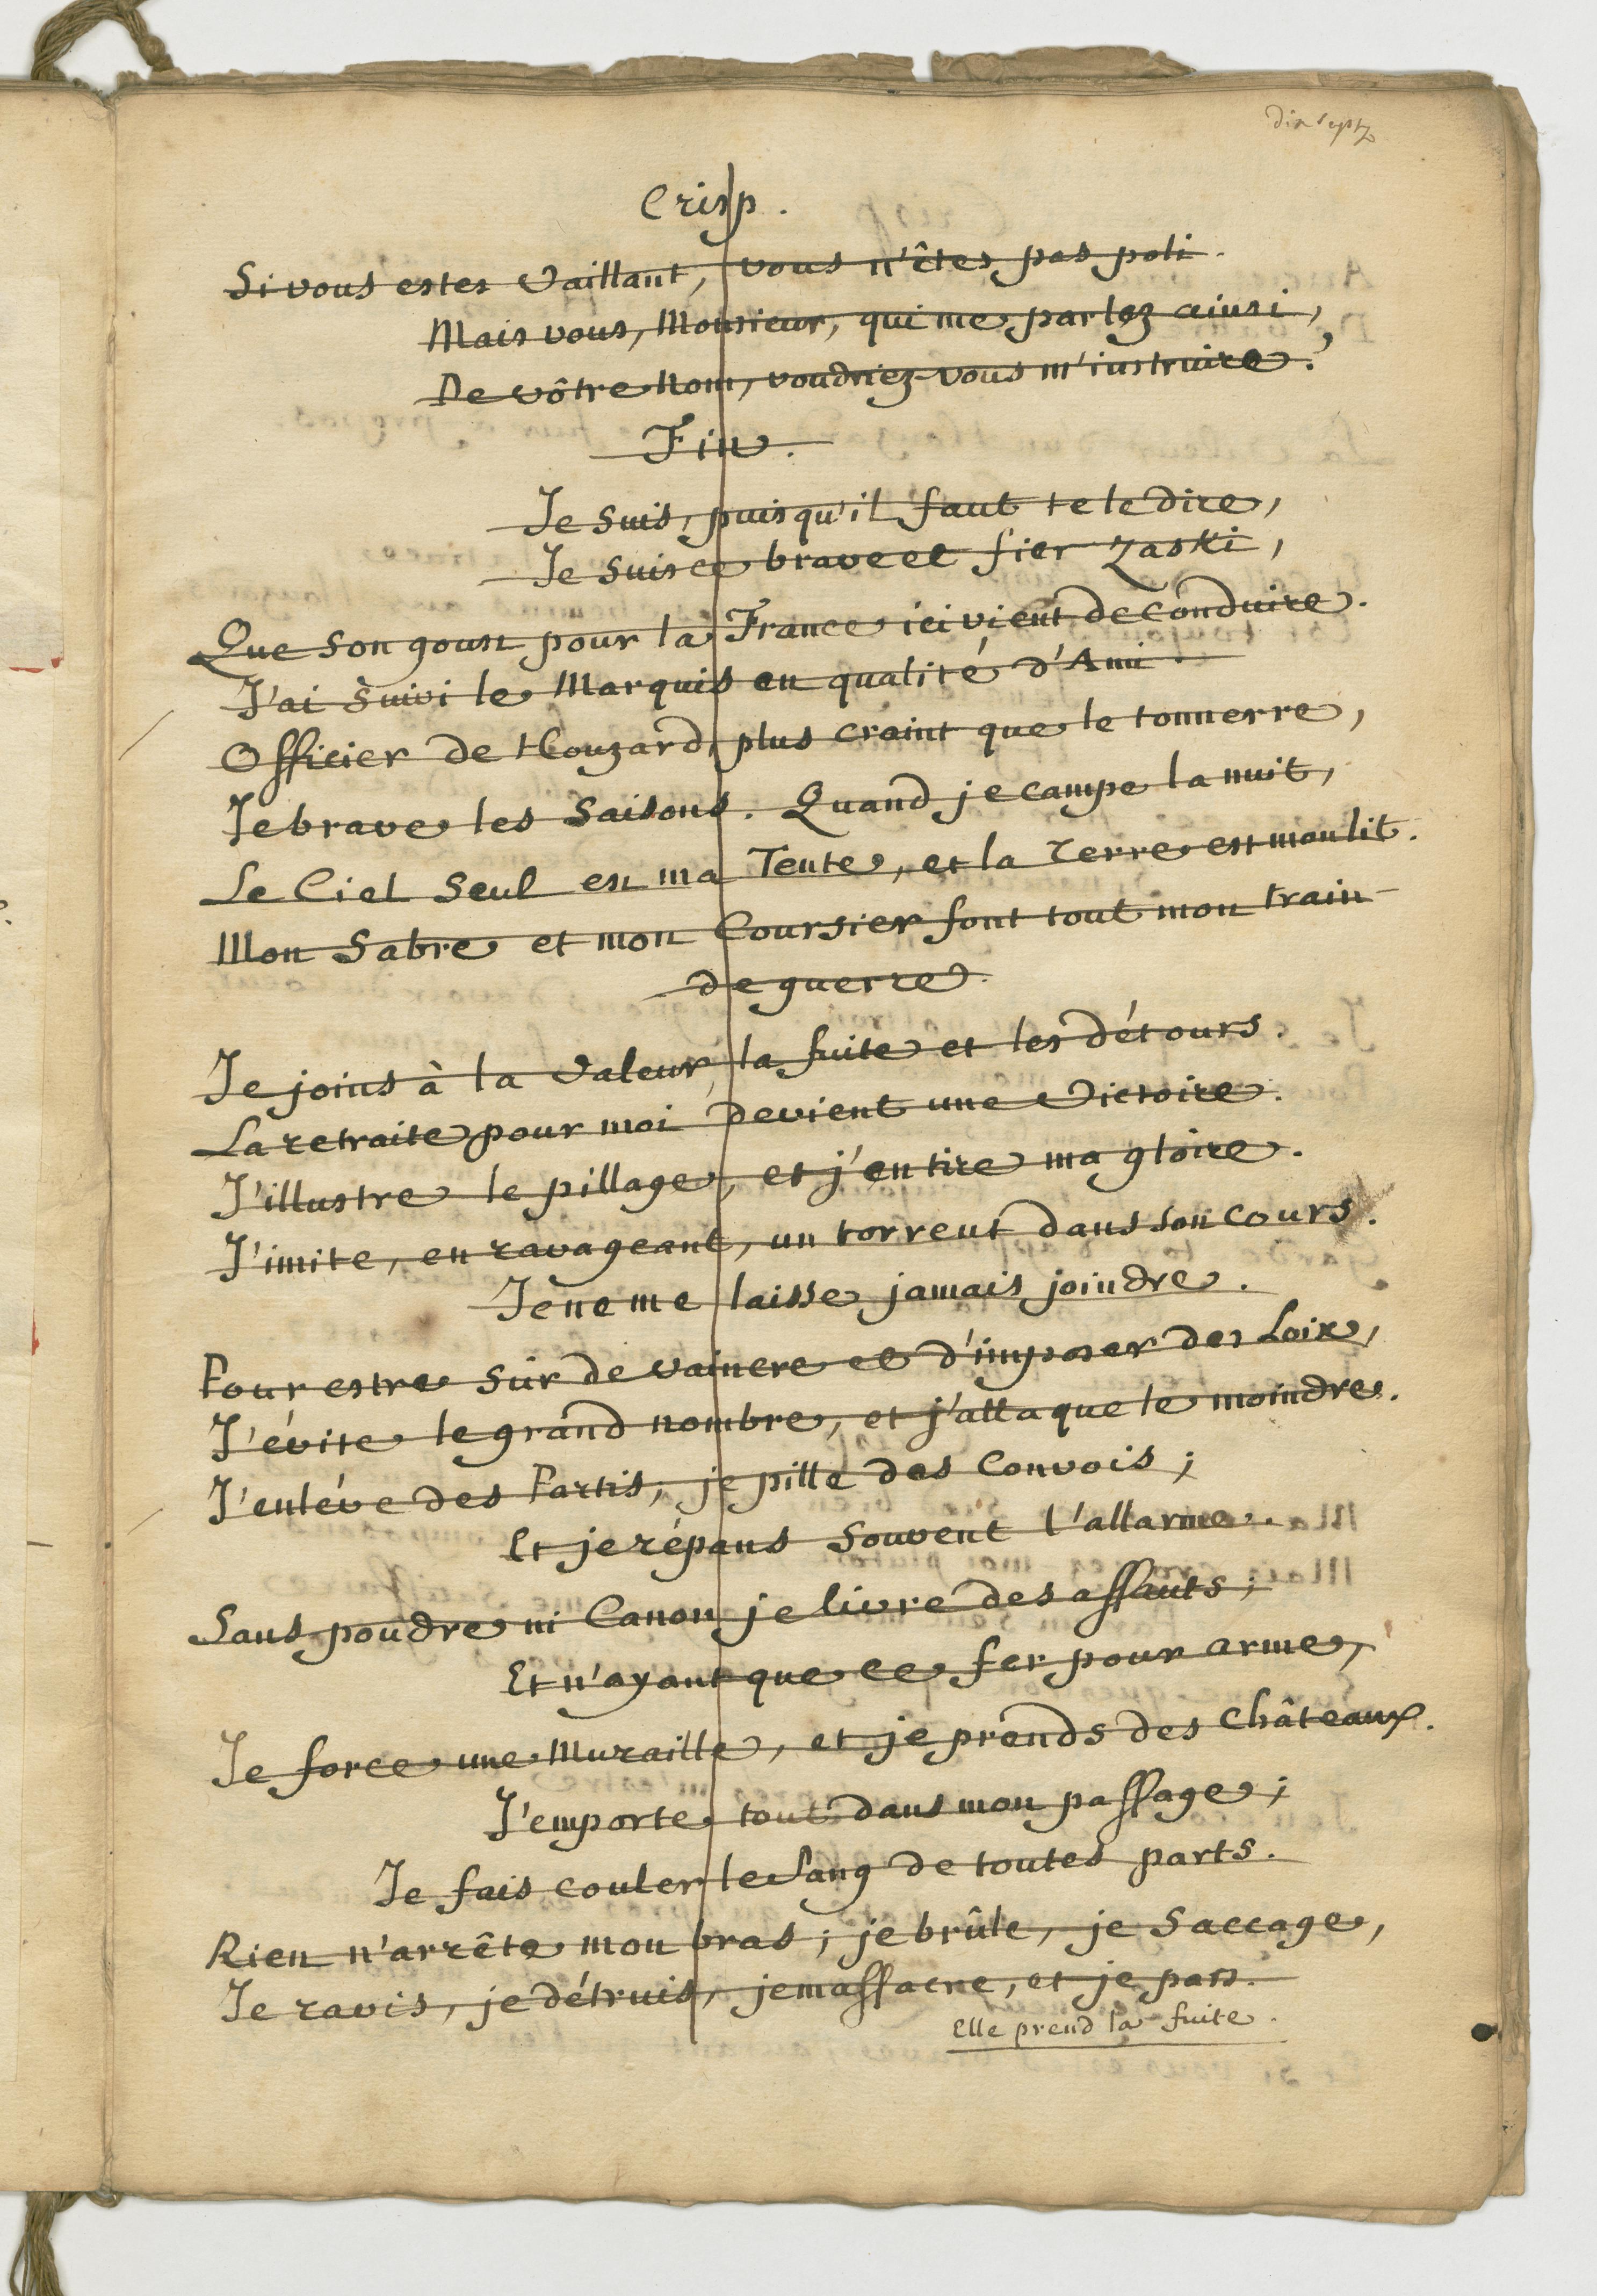 dix sept
Crisp.
Si vous estes Vaillant, vous n'êtes pas poli.
Mais vous, Monsieur, qui me parlez ainsi,
De vôtre Nom, voudriez-vous m'instruire?
Fin.
Je suis, puisqu'il faut te le dire,
Je suis ce brave et fier Zaski,
Que son goust pour la France ici vient de conduire.
J'ai Suivi le Marquis en qualité d'Ami.
Officier de Houzard, plus craint que le tonnerre,
Je brave les Saisons. Quand je campe la nuit,
Le Ciel Seul est ma Tente, et la Terre est mon lit.
Mon Sabre et mon Coursier font tout mon train
de guerre.
Je joins à la Valeur, la fuite et les détours.
La retraite pour moi devient une Victoire.
J'illustre le pillage, et j'en tire ma gloire.
J'imite, en ravageant, un torrent dans son cours.
Je ne me laisse jamais joindre.
Pour estre sûr de vaincre et d'imposer des Loix,
J'évite le grand nombre, et j'attaque le moindre.
J'enléve des Partis, je pille des Convois;
Et je répans souvent l'allarme.
Sans poudre ni Canon je livre des assauts;
Et n'ayant que ce fer pour arme,
Je force une Muraille, et je prends des Châteaux.
J'emporte tout dans mon passage;
Je fais couler le Sang de toutes parts.
Rien n'arrête mon bras; je brûle, je saccage,
Je ravis, je détruis, je massacre, et je pars.
Elle prend la fuite.